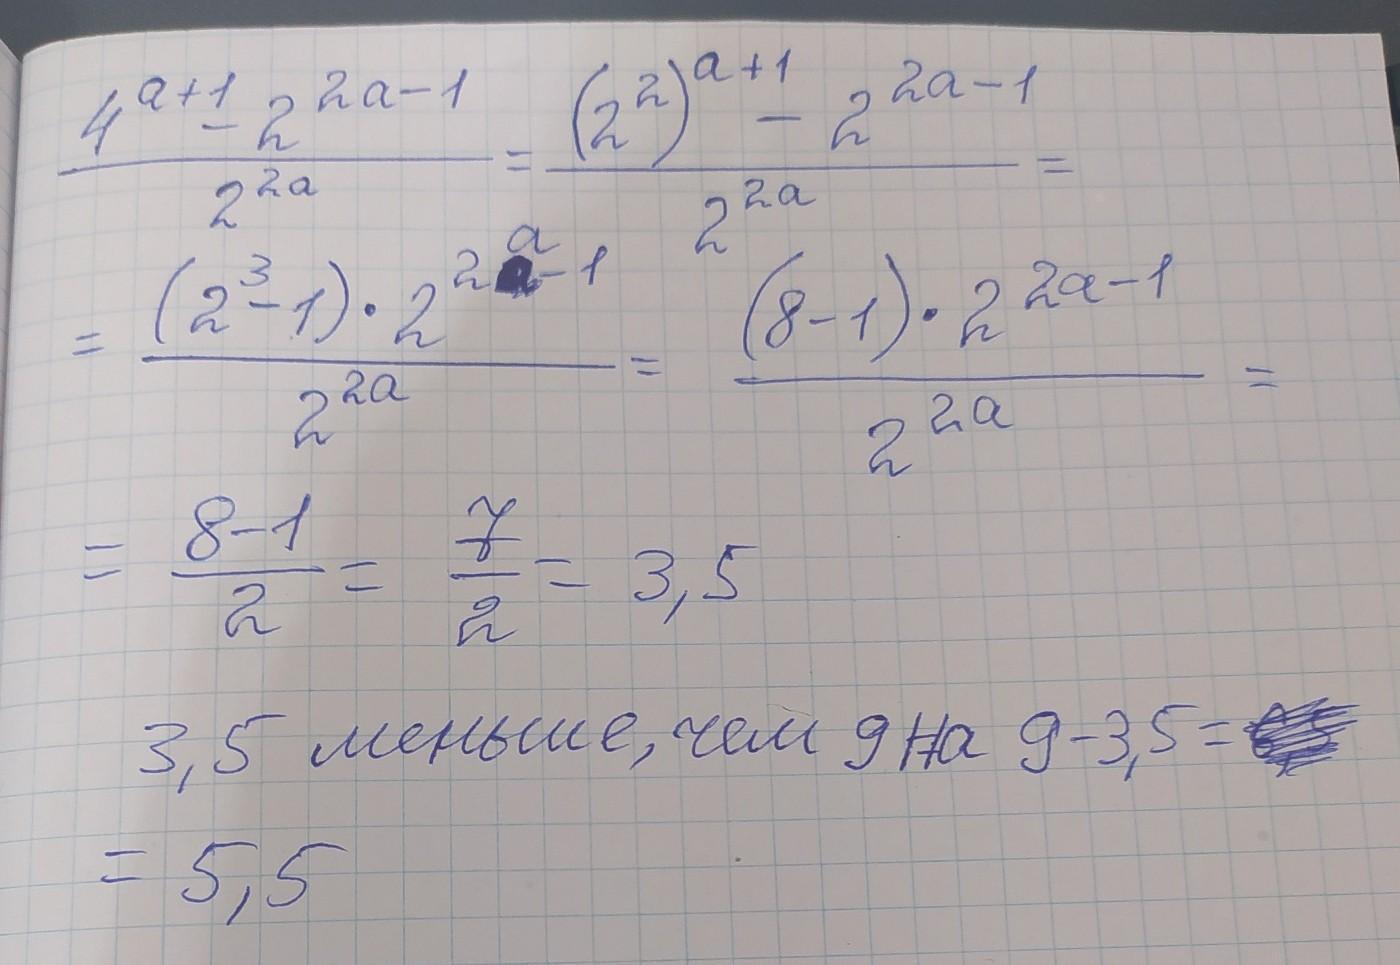 4^{a+1} - 2^{2a-1} / 2^{2a} = (2^2)^{a+1} - 2^{2a-1} / 2^{2a} =
= (2^3 - 1) · 2^{2a-1} / 2^{2a} = (8-1) · 2^{2a-1} / 2^{2a} =
= 8-1 / 2 = 7 / 2 = 3,5
3,5 меньше, чем 9 на 9-3,5=
= 5,5